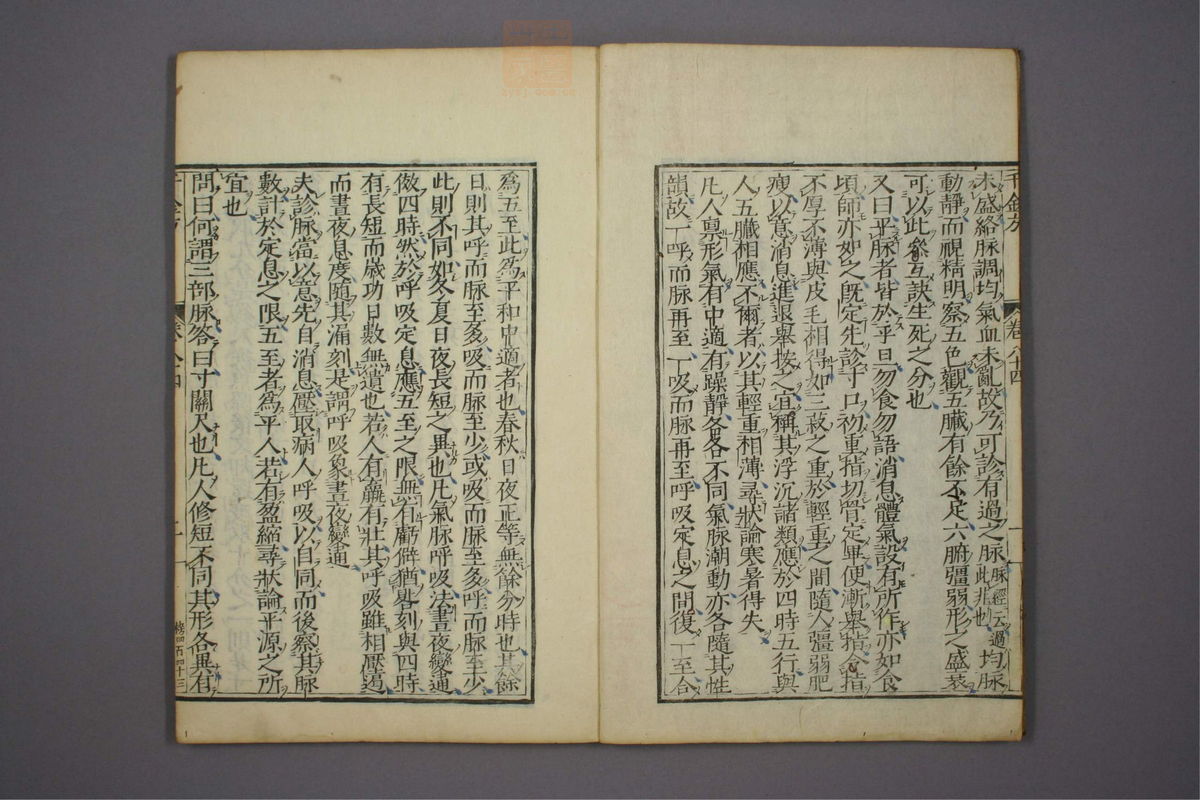 千金方 卷八十四 一
未盛絡脉調均氣血未亂故乃可診有過之脉脉經云過均脉此非也
動靜而視精明察五色觀五臟有餘不足六腑彊弱形之盛衰
可以此參互訣生死之分也
又曰平脉者皆於平旦勿食勿語消息體氣設有所作亦如食
頃師亦如之既定先診寸口初重指切骨定畢便漸舉指令指
不厚不薄與皮毛相得如三菽之重於輕重之間隨人彊弱肥
瘦以意消息進退舉按之宜稱其浮沉諸類應於四時五行與
人五臟相應不爾者以其輕重相薄尋狀論寒暑得失
凡人禀形氣有中適有躁靜各各不同氣脉潮動亦各隨其性
韻故一呼而脉再至一吸而脉再至呼吸定息之間復一至合
爲五至此爲平和中適者也春秋日夜正等無餘分時也其餘
日則其呼而脉至多吸而脉至少或吸而脉至多呼而脉至少
此則不同如冬夏日夜長短之異也凡氣脉呼吸法晝夜變通
倣四時然於呼吸定息應五至之限無有虧僻猶晷刻與四時
有長短而歲功日數無遺也若人有羸有壯其呼吸雖相壓遏
而晝夜息度隨其漏刻是謂呼吸象晝夜變通
夫診脉當以意先自消息壓取病人呼吸以自同而後察其脉
數計於定息之限五至者爲平人若有盈縮尋狀論平源之所
宜也
問曰何謂三部脉答曰寸關尺也凡人修短不同其形各異有
千金方 卷八十四 一 四百四十三